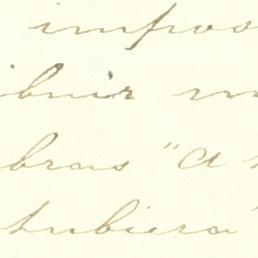 impos
ibuir m
bras "A
tubiera"